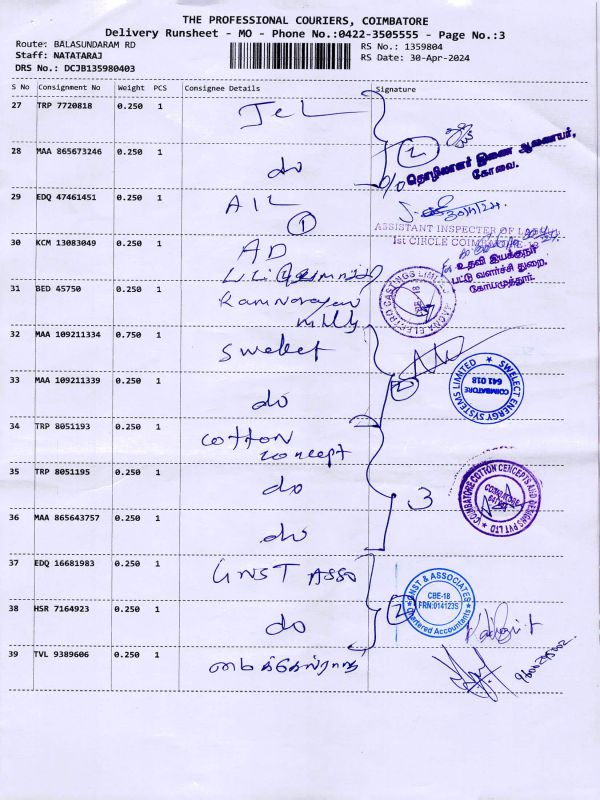 THE PROFESSIONAL COURIERS, COIMBATORE
Delivery Runsheet - MO - Phone No.:0422-3505555 - Page No.:3
Route: BALASUNDARAM RD
Staff: NATATARAJ
DRS No.: DCJB135980403
RS No.: 1359804
RS Date: 30-Apr-2024
S No Consignment No Weight PCS Consignee Details Signature
27 TRP 7720818 0.250 1 JCL
28 MAA 865673246 0.250 1 do
2
தொழிலாளர் இணை ஆணையர்,
கோவை.
29 EDQ 47461451 0.250 1 AIL
1
30/4/24
ASSISTANT INSPECTER OF
1st CIRCLE COIMBATORE-18
30 KCM 13083049 0.250 1 AD
உதவி இயக்குநர்
பட்டு வளர்ச்சி துறை,
கோயமுத்தூர்.
31 BED 45750 0.250 1 Ramnarayan
Mills
ELECTRO CASTINGS LIMITED
32 MAA 109211334 0.750 1 Swelect
33 MAA 109211339 0.250 1 do
2
SWELECT ENERGY SYSTEMS LIMITED
COIMBATORE
641 018
34 TRP 8051193 0.250 1 Cotton
Concept
35 TRP 8051195 0.250 1 do
3
COIMBATORE COTTON CENCEPTS AND DESIGNS PVT LTD
36 MAA 865643757 0.250 1 do
37 EDQ 16681983 0.250 1 GNST ASSO
38 HSR 7164923 0.250 1 do
2
GNST & ASSOCIATES
CBE-18
FRN:014123S
Chartered Accountants
39 TVL 9389606 0.250 1